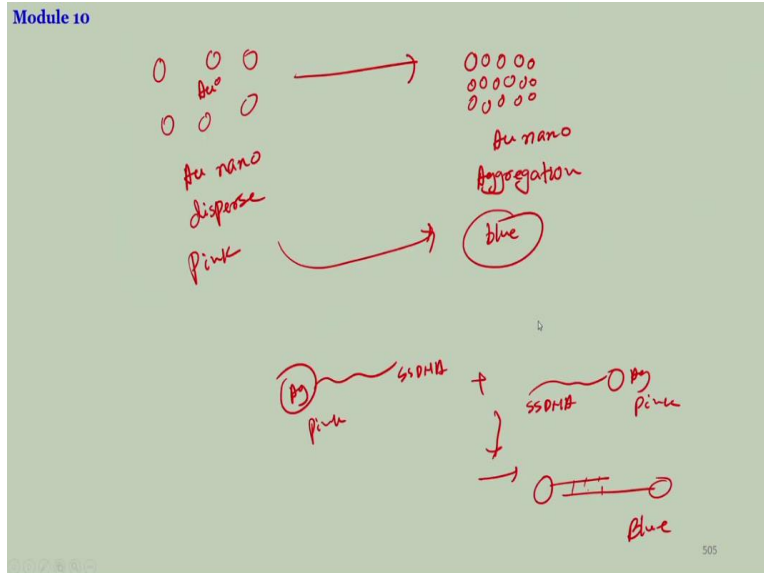 Module 10
Au°
Au nano
disperse
Pink
Au nano
Aggregation
blue
Ag
SSDNA
+
SSDNA
Ag
Pink
Pink
Blue
505